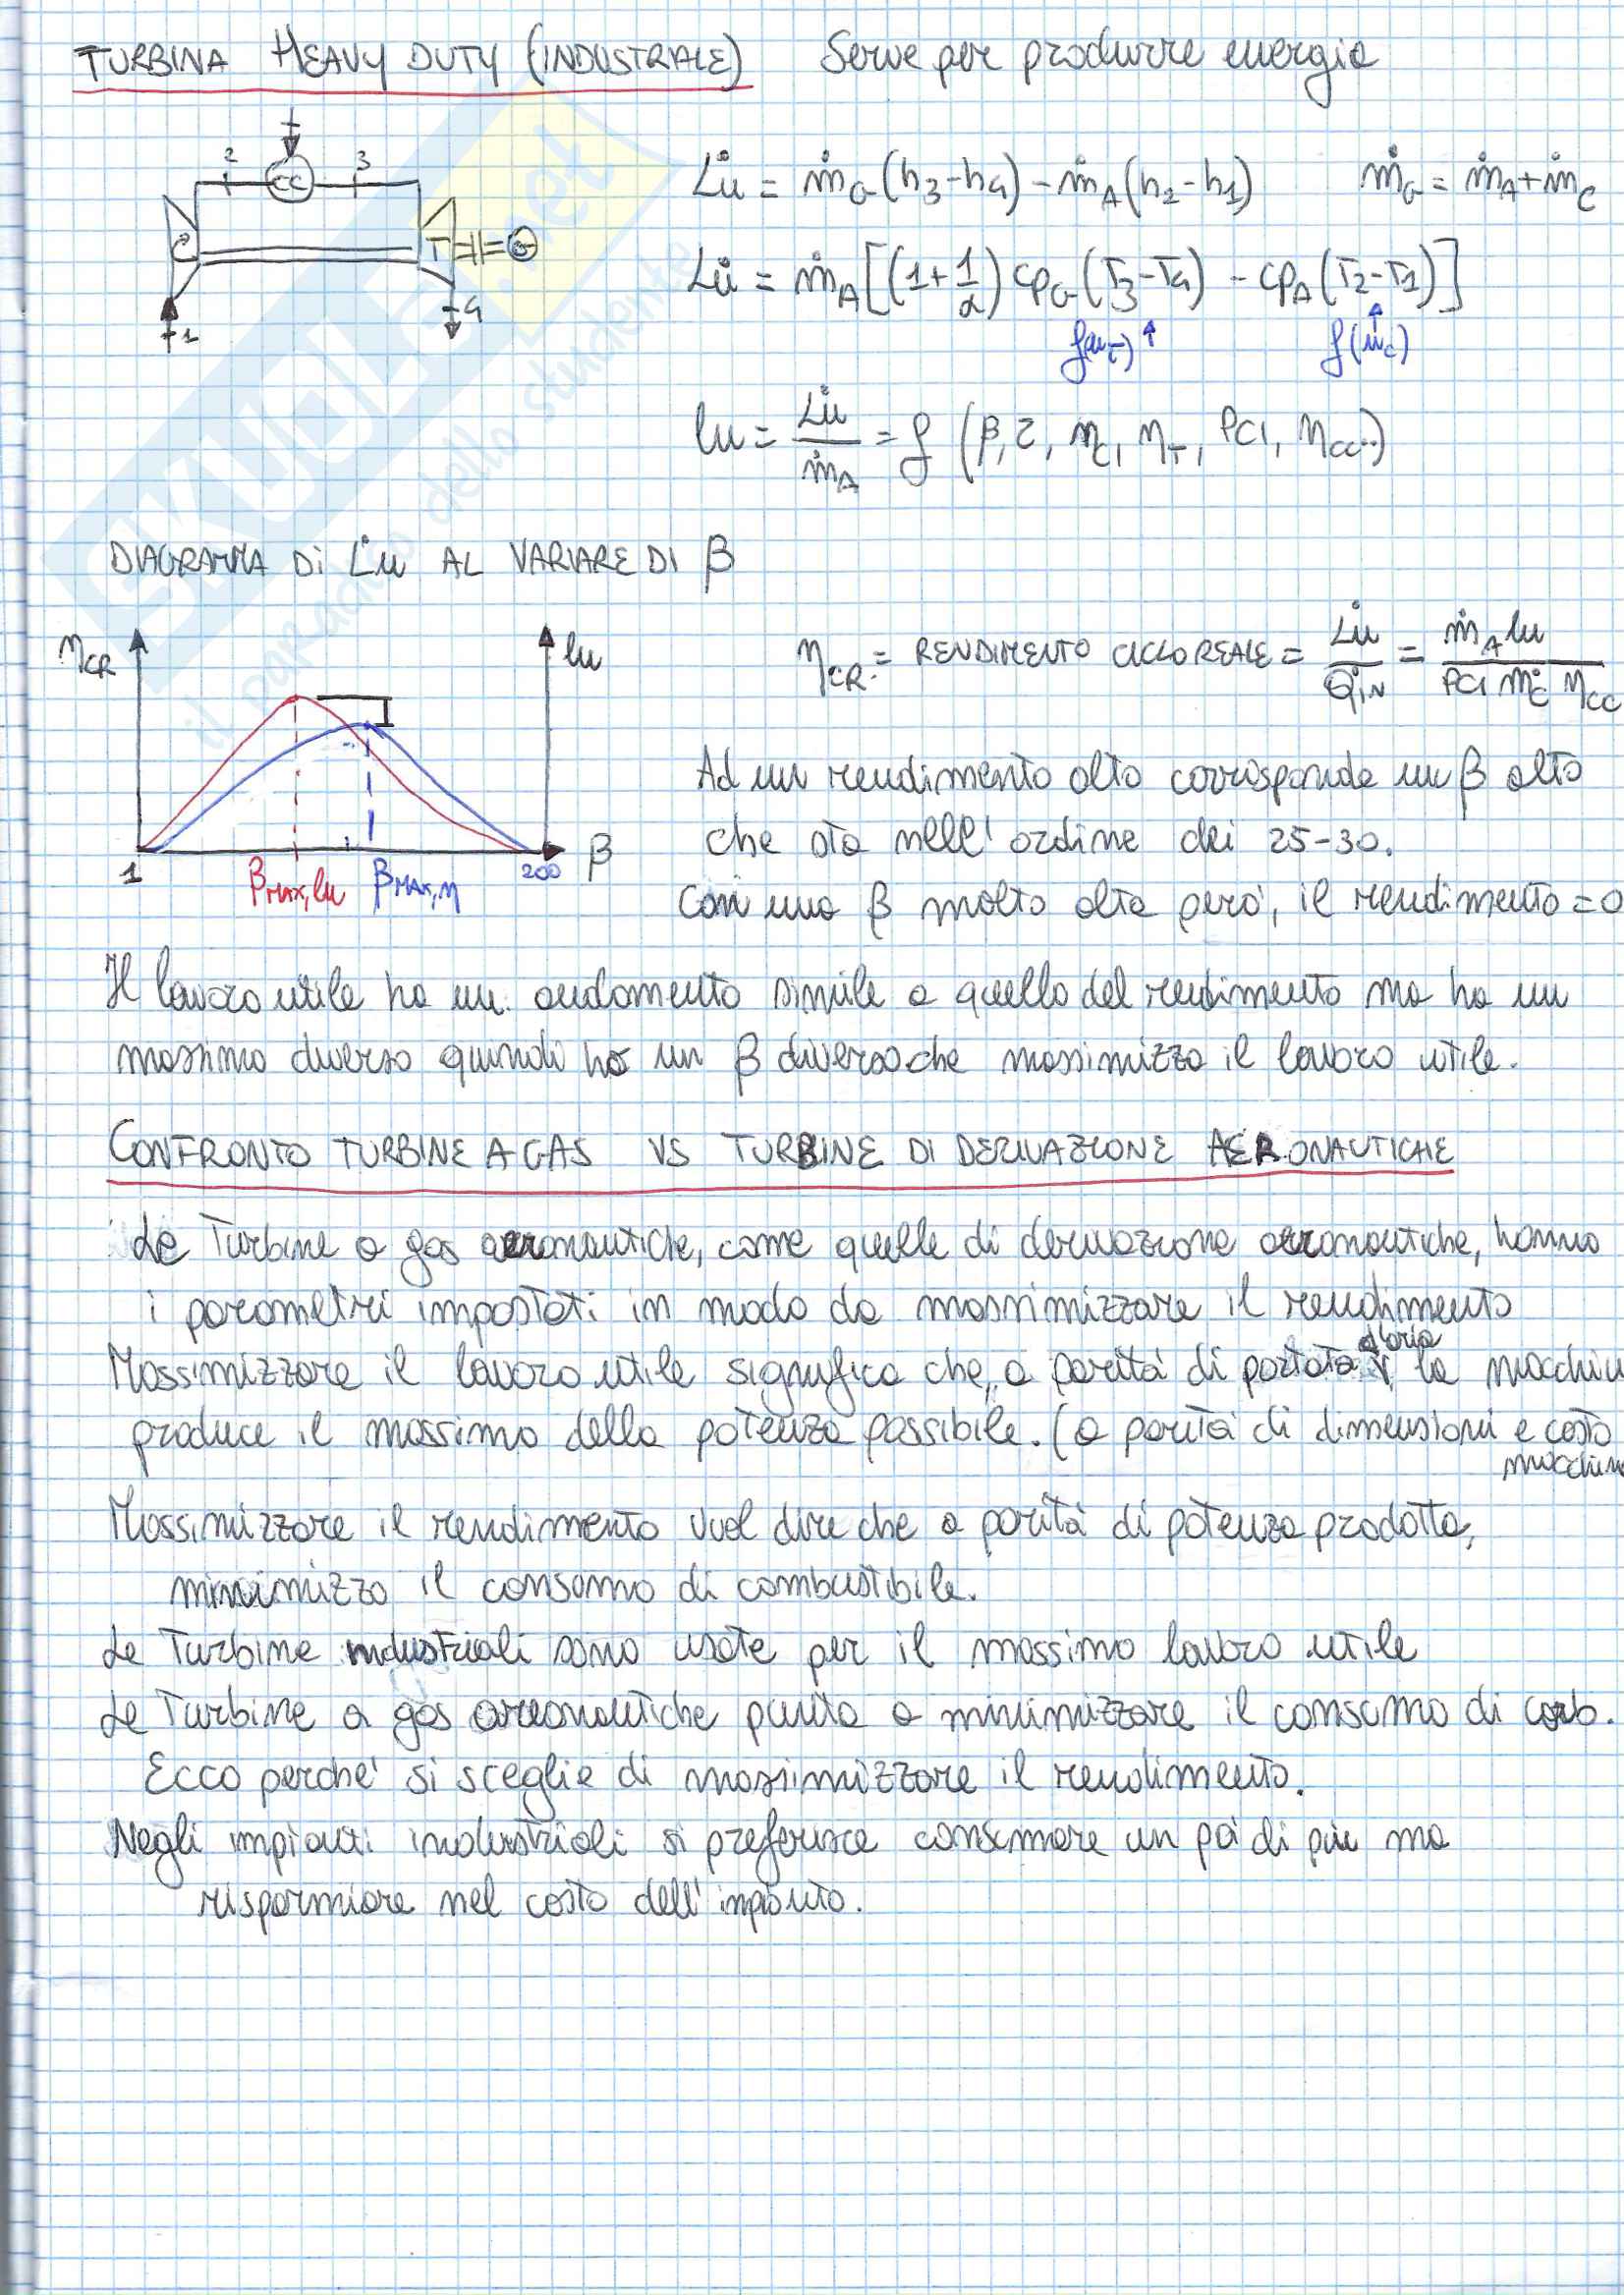 TURBINA HEAVY DUTY (INDUSTRIALE) Serve per produrre energia
2 CC 3
C T G
1 4
L̇u = ṁG (h3-h4) - ṁA (h2-h1) ṁG = ṁA + ṁC
L̇u = ṁA [(1+1/α) cpG (T3-T4) - cpA (T2-T1)]
f(ηT) f(ηC)
lu = L̇u/ṁA = f (β, τ, ηC, ηT, PCI, ηCC..)
DIAGRAMMA DI L̇u AL VARIARE DI β
ηCR lu
ηCR = RENDIMENTO CICLO REALE = L̇u/Q̇IN = ṁA lu/PCI ṁC ηCC
1 βMAX,lu βMAX,η 200 β
Ad un rendimento alto corrisponde un β alto
che sta nell'ordine dei 25-30.
Con una β molto alta però, il rendimento = 0
Il lavoro utile ha un andamento simile a quello del rendimento ma ha un
massimo diverso quindi ho un β diverso che massimizza il lavoro utile.
CONFRONTO TURBINE A GAS VS TURBINE DI DERIVAZIONE AERONAUTICHE
Le Turbine a gas aeronautiche, come quelle di derivazione aeronautiche, hanno
i parametri impostati in modo da massimizzare il rendimento
Massimizzare il lavoro utile significa che, a parità di portata d'aria, la macchin
produce il massimo della potenza possibile. (a parità di dimensioni e costo
macchina
Massimizzare il rendimento vuol dire che a parità di potenza prodotta,
minimizzo il consumo di combustibile.
Le Turbine industriali sono usate per il massimo lavoro utile
Le Turbine a gas aeronautiche punta a minimizzare il consumo di comb.
Ecco perche' si sceglie di massimizzare il rendimento.
Negli impianti industriali si preferisce consumare un pò di più ma
risparmiare nel costo dell'impianto.
SKUOLA.net
il paradiso dello studente